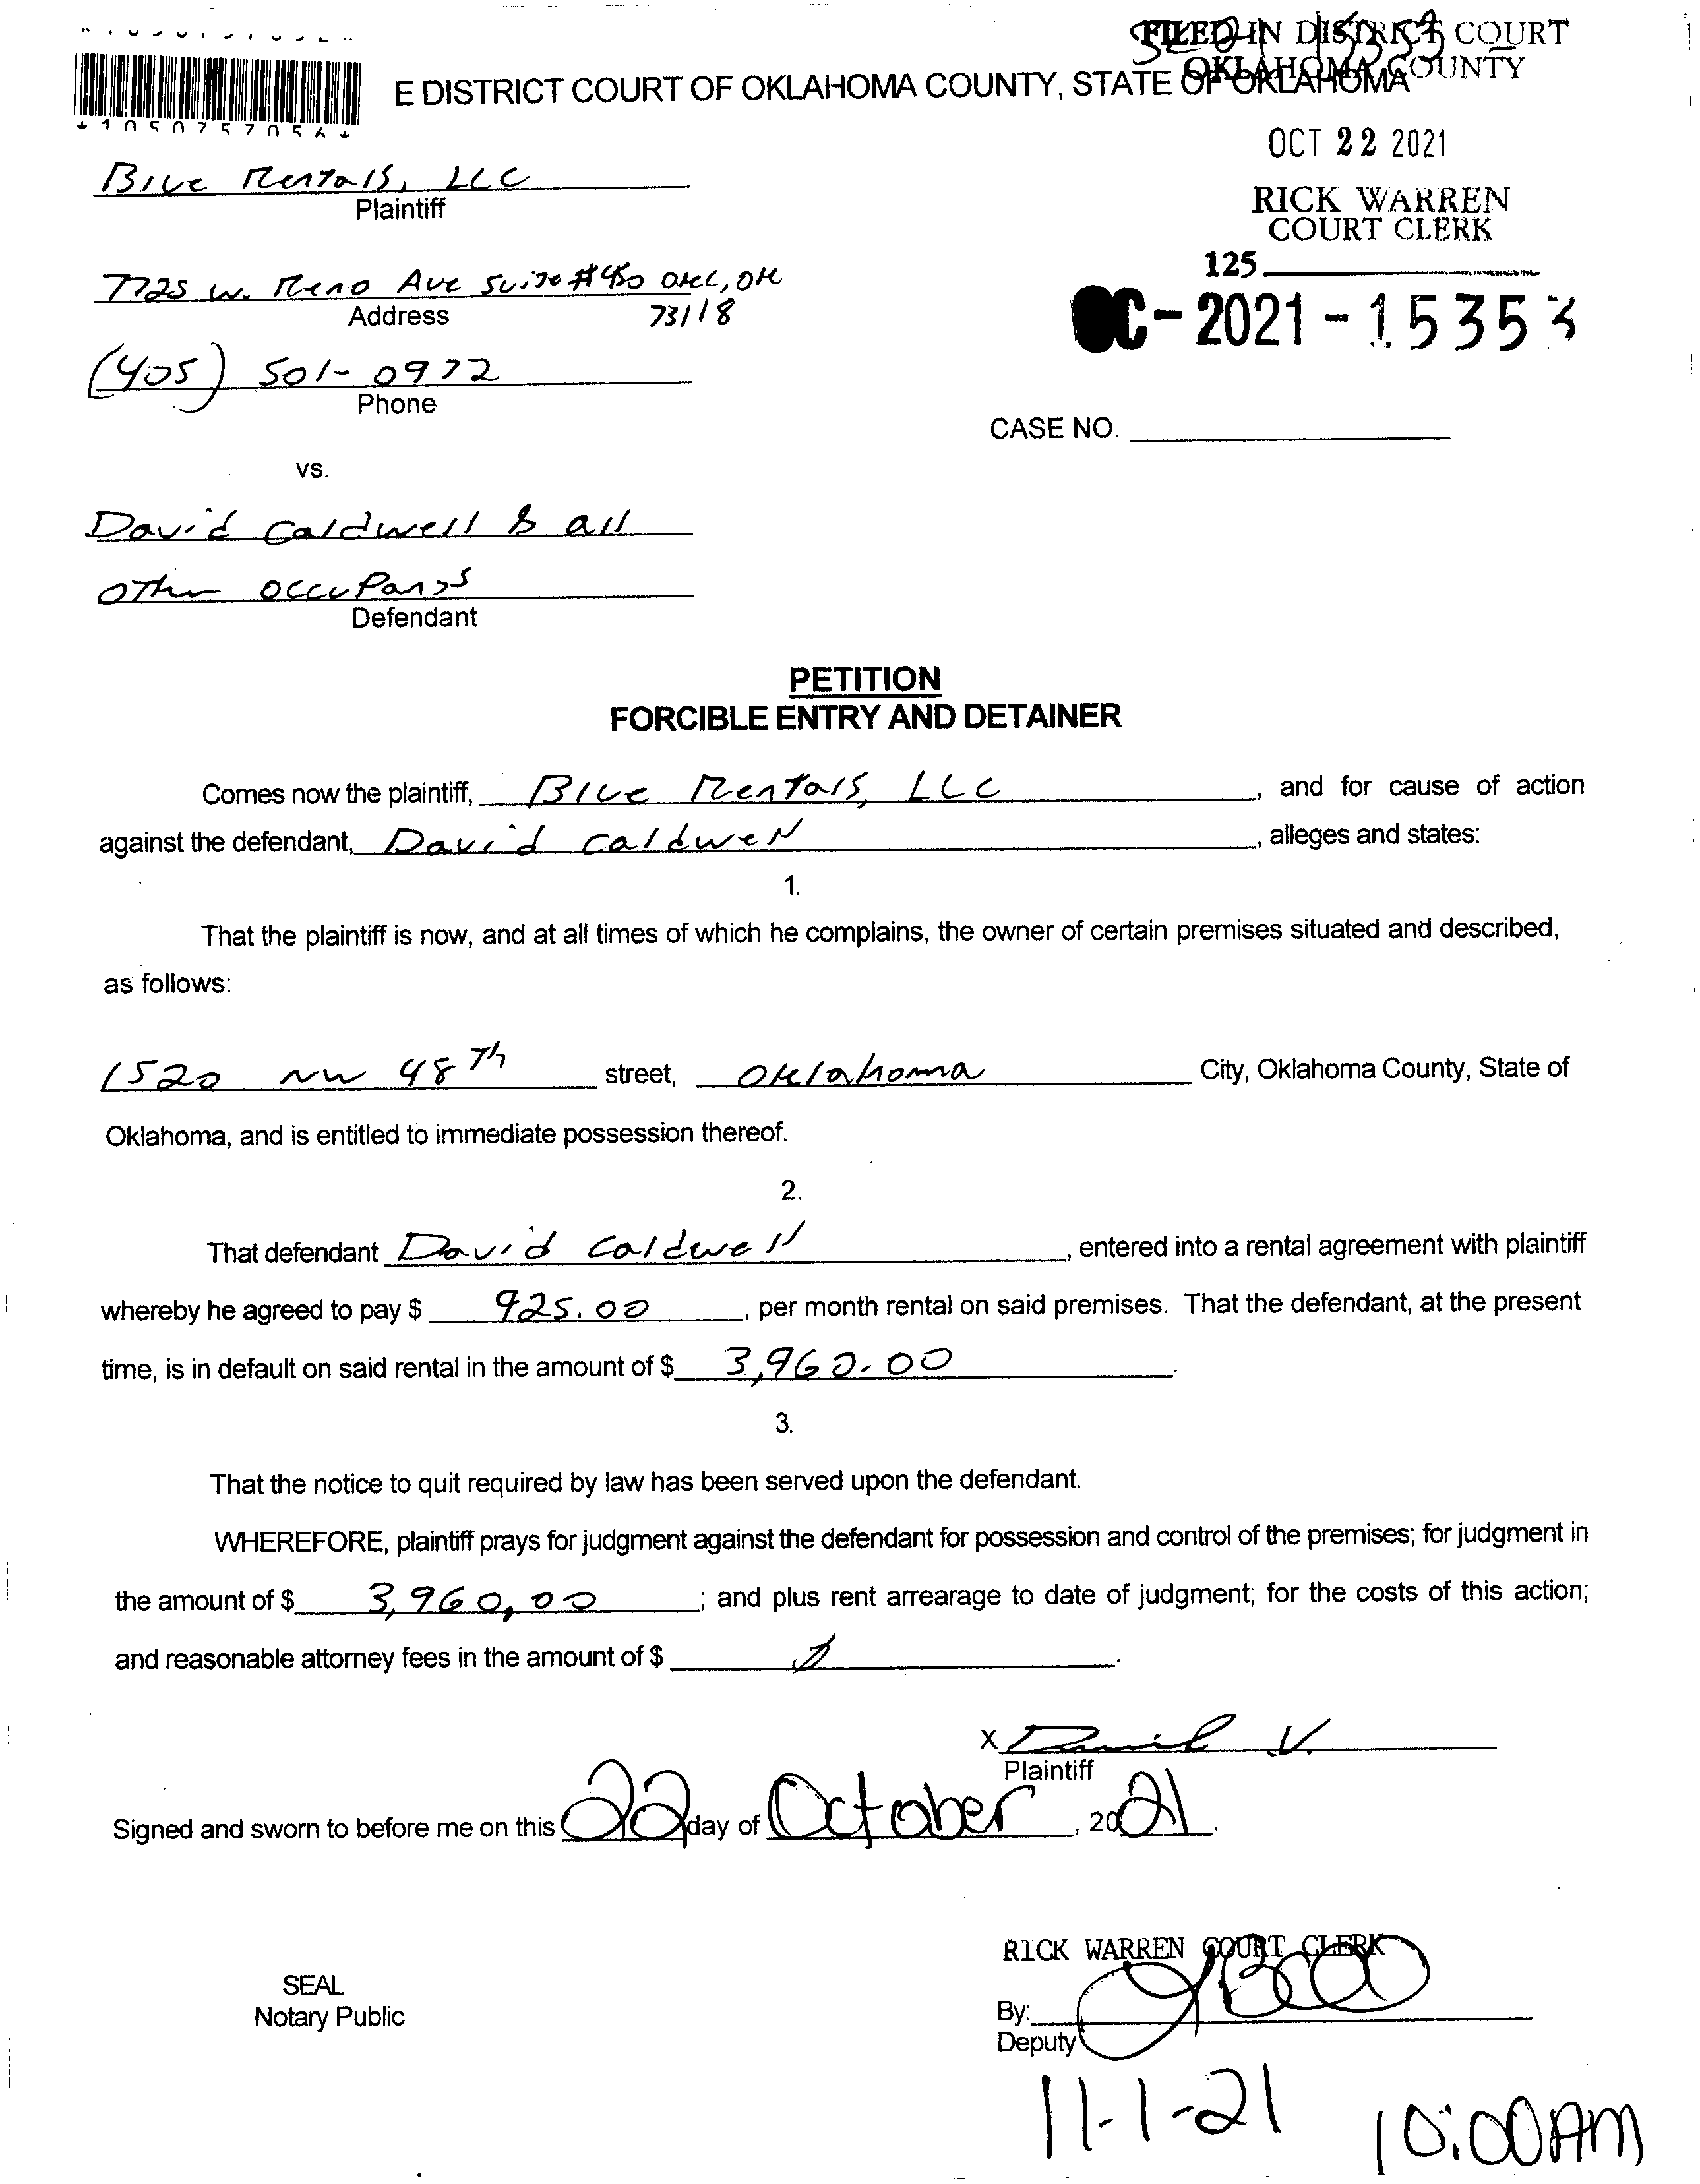 FILED IN DISTRICT COURT
OKLAHOMA COUNTY
E DISTRICT COURT OF OKLAHOMA COUNTY, STATE OF OKLAHOMA
*1050757056*
OCT 22 2021
RICK WARREN
COURT CLERK
125
Blue Rentals, LLC
Plaintiff
7725 W. Reno Ave Suite #450 OKC, OK
Address 73118
(405) 501-0972
Phone
C-2021-1535
CASE NO.
vs.
David Caldwell & all
other occupants
Defendant
PETITION
FORCIBLE ENTRY AND DETAINER
Comes now the plaintiff, Blue Rentals, LLC, and for cause of action
against the defendant, David Caldwell, alleges and states:
1.
That the plaintiff is now, and at all times of which he complains, the owner of certain premises situated and described,
as follows:
1520 NW 48th street, Oklahoma City, Oklahoma County, State of
Oklahoma, and is entitled to immediate possession thereof.
2.
That defendant David Caldwell, entered into a rental agreement with plaintiff
whereby he agreed to pay $ 925.00, per month rental on said premises. That the defendant, at the present
time, is in default on said rental in the amount of $ 3,960.00.
3.
That the notice to quit required by law has been served upon the defendant.
WHEREFORE, plaintiff prays for judgment against the defendant for possession and control of the premises; for judgment in
the amount of $ 3,960.00; and plus rent arrearage to date of judgment; for the costs of this action;
and reasonable attorney fees in the amount of $ .
X
Plaintiff
Signed and sworn to before me on this 22 day of October, 2021.
RICK WARREN COURT CLERK
SEAL
Notary Public
By:
Deputy
11-1-21 10:00AM